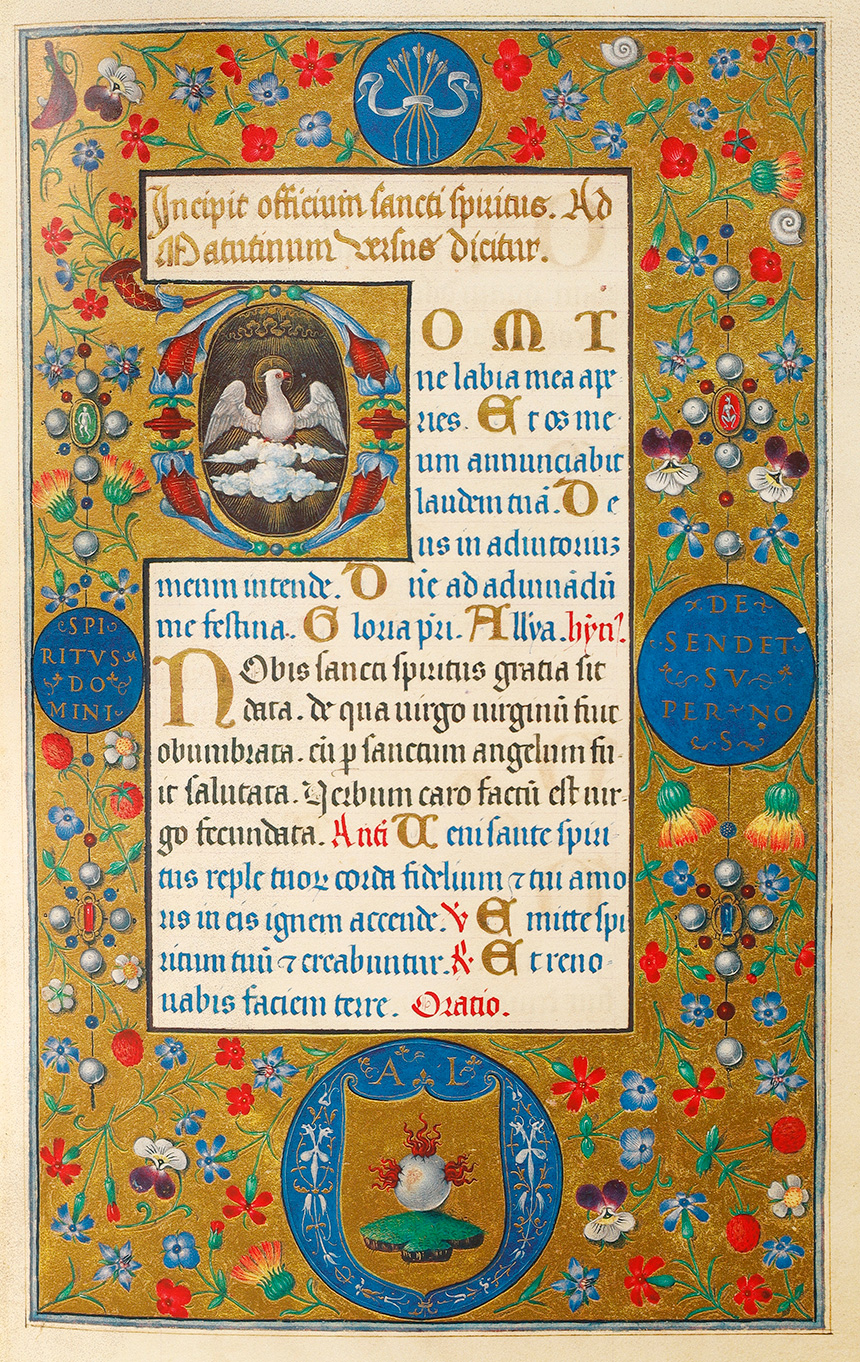 Incipit officium sancti spiritus. Ad
Matutinum versus dicitur.
DOMI
ne labia mea ape
ries. Et os me
um annunciabit
laudem tuā. De
us in adiutoriuz
meum intende. Dn̄e ad adiuuādū
me festina. Gloria pr̄i. All'ya. hym̄.
NObis sancti spiritus gratia sit
data. de qua uirgo uirginū fuit
obumbrata. cū p sanctum angelum fu
it salutata. Verbum caro factū est uir
go fecundata. Anti Ueni sante spiri
tus reple tuoꝝ corda fidelium ⁊ tui amo
ris in eis ignem accende. V Emitte spi
ritum tuū ⁊ creabuntur. R Et reno
uabis faciem terre. Oratio.
SPI
RITVS
DO
MINI
DE
SENDET
SV
PER NO
S
A L